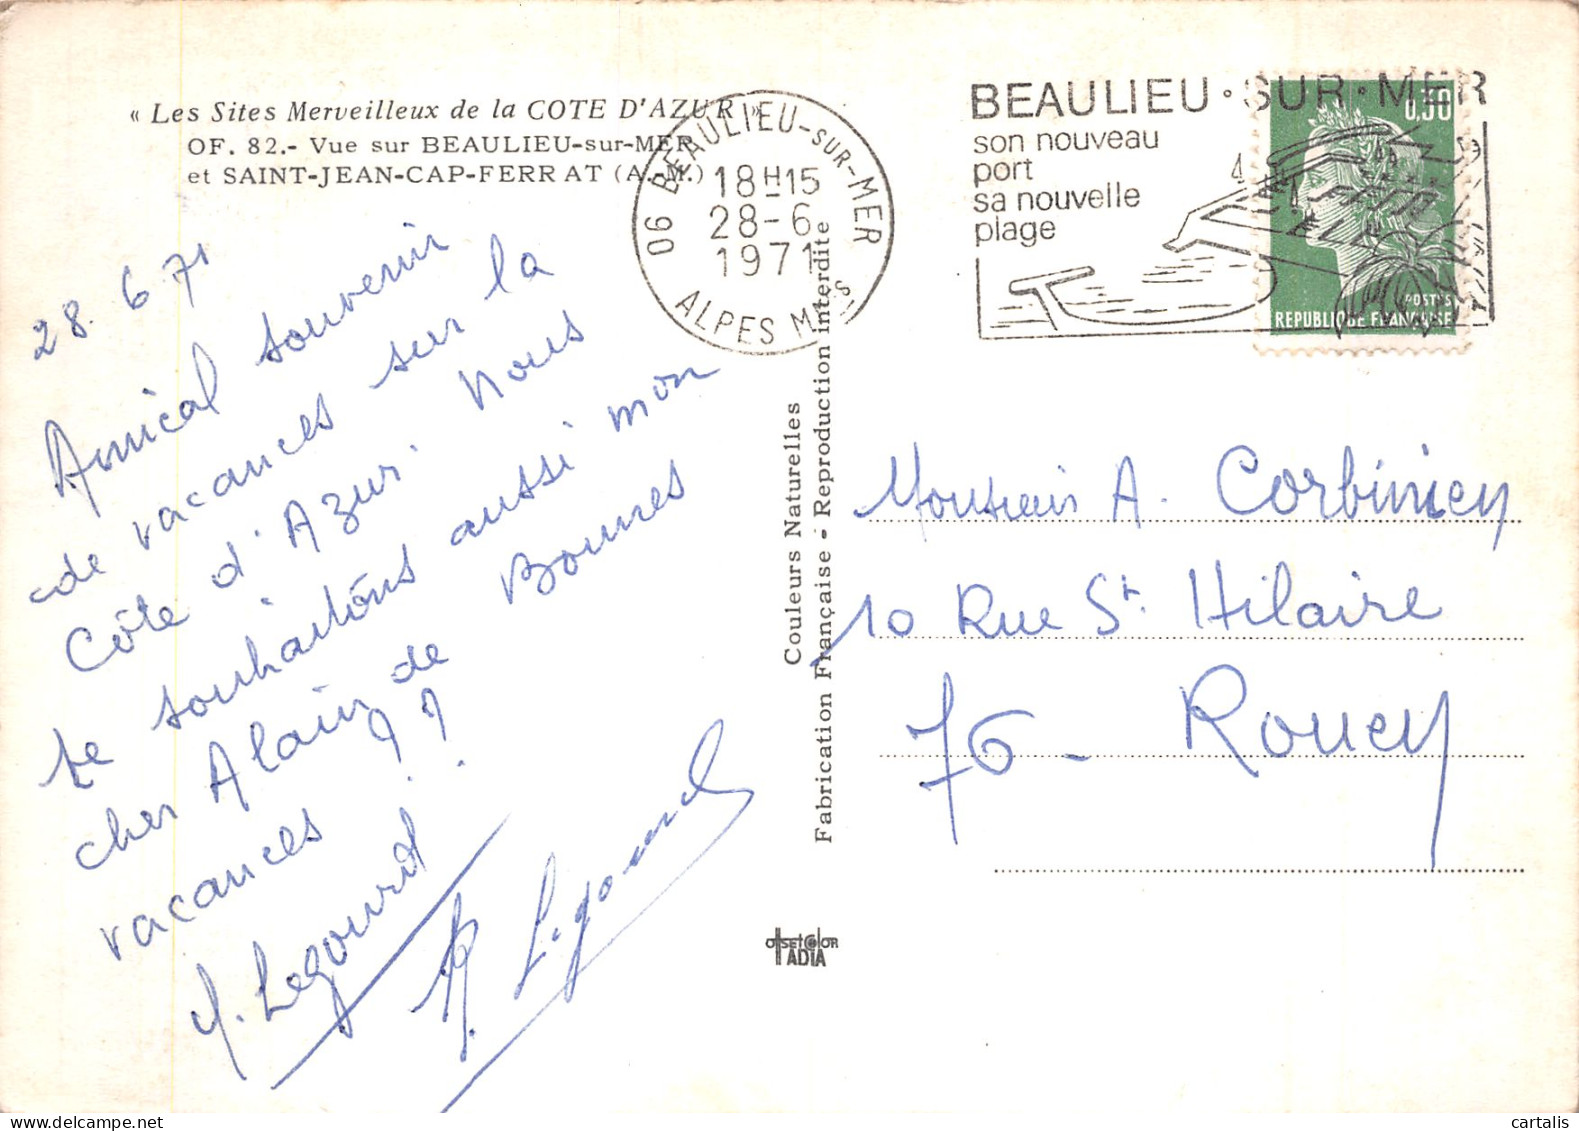 « Les Sites Merveilleux de la COTE D'AZUR »
OF. 82.- Vue sur BEAULIEU-sur-MER
et SAINT-JEAN-CAP-FERRAT (A.-M.)
06 BEAULIEU-SUR-MER
18H15
28-6
1971
ALPES MMES
BEAULIEU·SUR·MER
son nouveau
port
sa nouvelle
plage
0,30
POSTES
REPUBLIQUE FRANÇAISE
28.6.71
Amical souvenir
de vacances sur la
Côte d'Azur. Nous
te souhaitons aussi mon
cher Alain de Bonnes
vacances !!
Legourd
Legourd
Couleurs Naturelles
Fabrication Française - Reproduction interdite
OFFSET COLOR
ADIA
Monsieur A.
10 Rue St. Hilaire
76 - Rouen
cartalis | www.delcampe.net